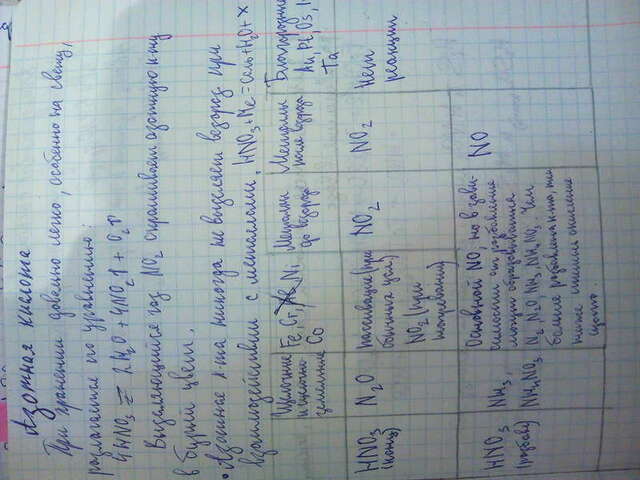 Азотная кислота
При хранении довольно легко, особенно на свету,
разлагается по уравнению:
4HNO3 ⇄ 2H2O + 4NO2↑ + O2↑
Выделяющийся газ NO2 окрашивает азотную к-ту
в бурый цвет.
• Азотная к-та никогда не выделяет водород при
взаимодействии с металлами. HNO3 + Me = соль + H2O + X
Щелочные
и щелочно
земельные
Fe, Cr, Ni
Co
Металлы
до водорода
Металлы
после водорода
Благородные
Au, Pt, Os, I
Ta
HNO3
(конц)
N2O
пассивация (при
обычных усл)
NO2 (при
нагревании)
NO2
NO2
Нет
реакции
HNO3
(разбав)
NH3,
NH4NO3
Основной NO, но в зави-
симости от разбавления
могут образовываться
N2, N2O, NH3, NH4NO3. Чем
более разбавлена к-та, тем
ниже степень окисления
азота.
NO